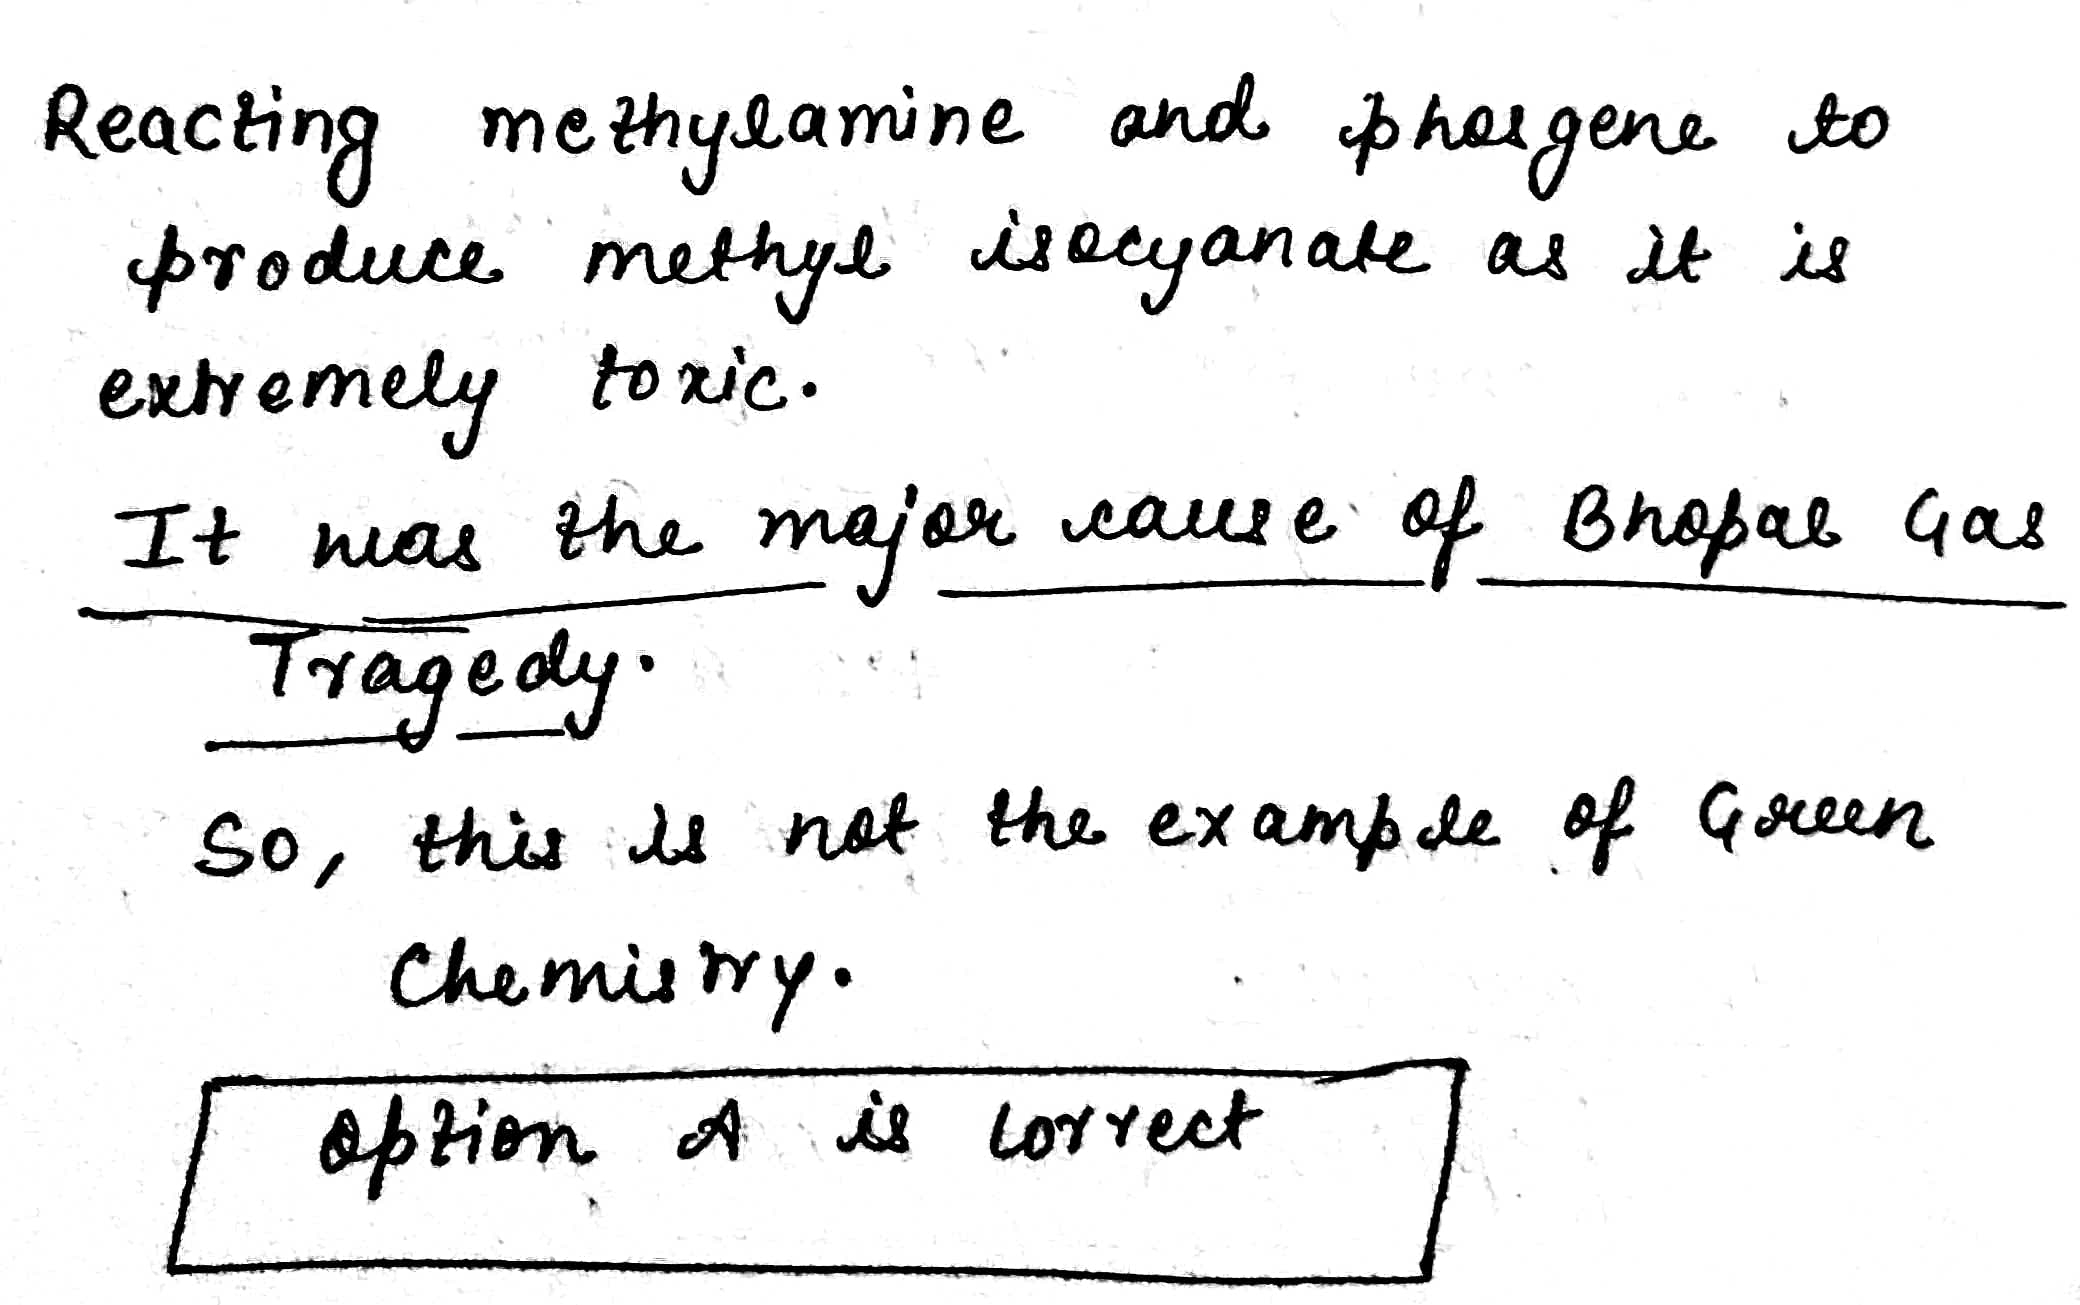 Reacting methylamine and phosgene to
produce methyl isocyanate as it is
extremely toxic.
It was the major cause of Bhopal Gas
Tragedy.
So, this is not the example of Green
Chemistry.
option A is correct